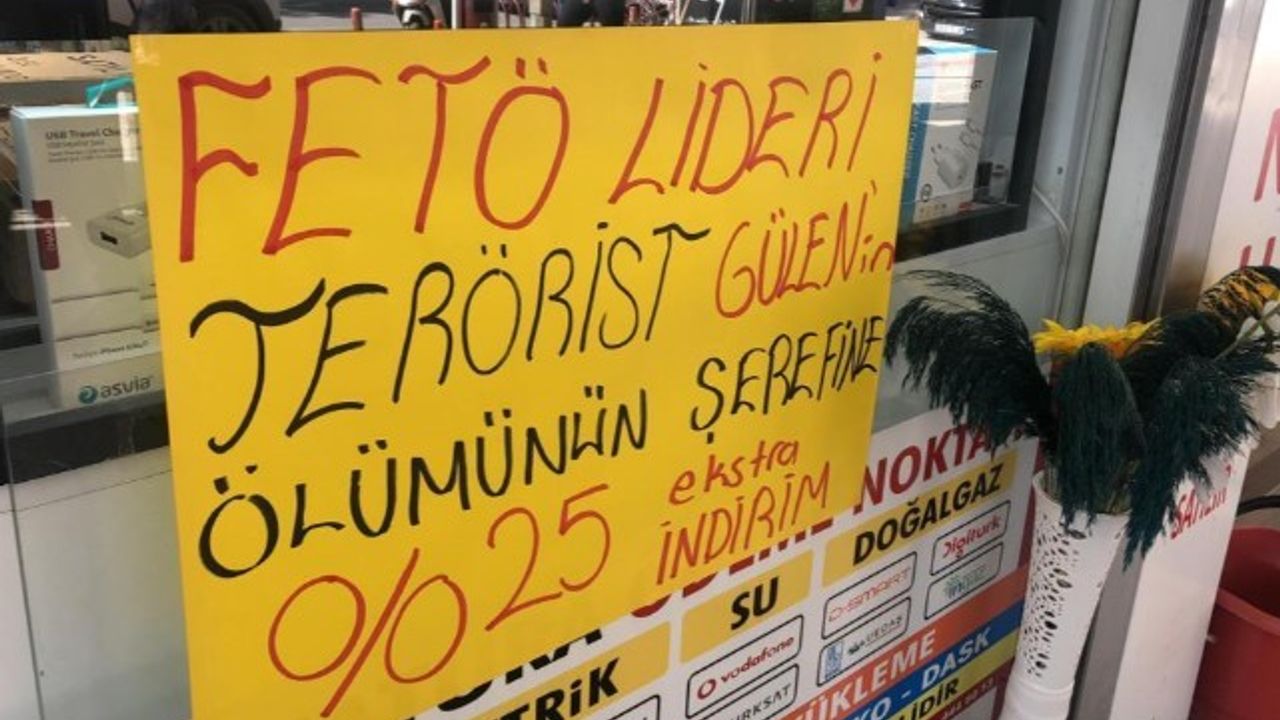 FETÖ LİDERİ
TERÖRİST GÜLENin
ÖLÜMÜNÜN ŞEREFİNE
%25 ekstra İNDİRİM
USB Travel
asvia
NOKTA
DOĞALGAZ
SU
TRİK
Digiturk
D-SMART
vodafone
ÜKLEME
DASK
LİDİR